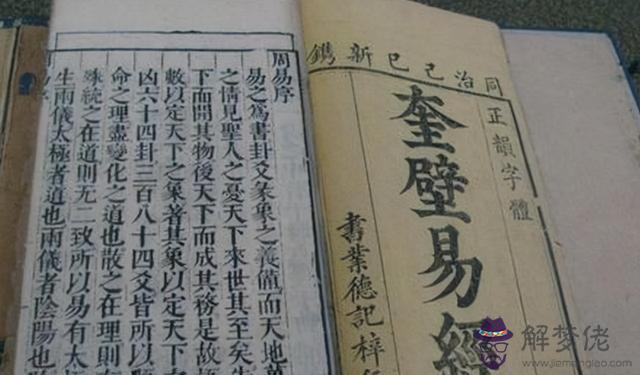 同治己巳新鐫
正韻字體
奎壁易經
書業德記梓
周易序
易之爲書卦爻彖象之義備而天地萬
之情見聖人之憂天下來世其至矣先
下而開其物後天下而成其務是故極
數以定天下之象著其象以定天下
凶六十四卦三百八十四爻皆所以
命之理盡變化之道也散之在理則有
殊統之在道則无二致所以易有太極
生兩儀太極者道也兩儀者陰陽也
解梦佬
www.jiemenglao.com